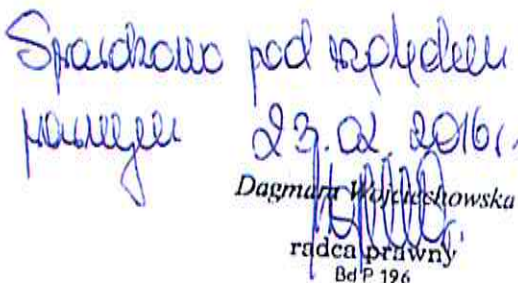 Sprawdzono pod względem
prawnym 23.02.2016r.
Dagmara Wojciechowska
radca prawny
Bd P 196